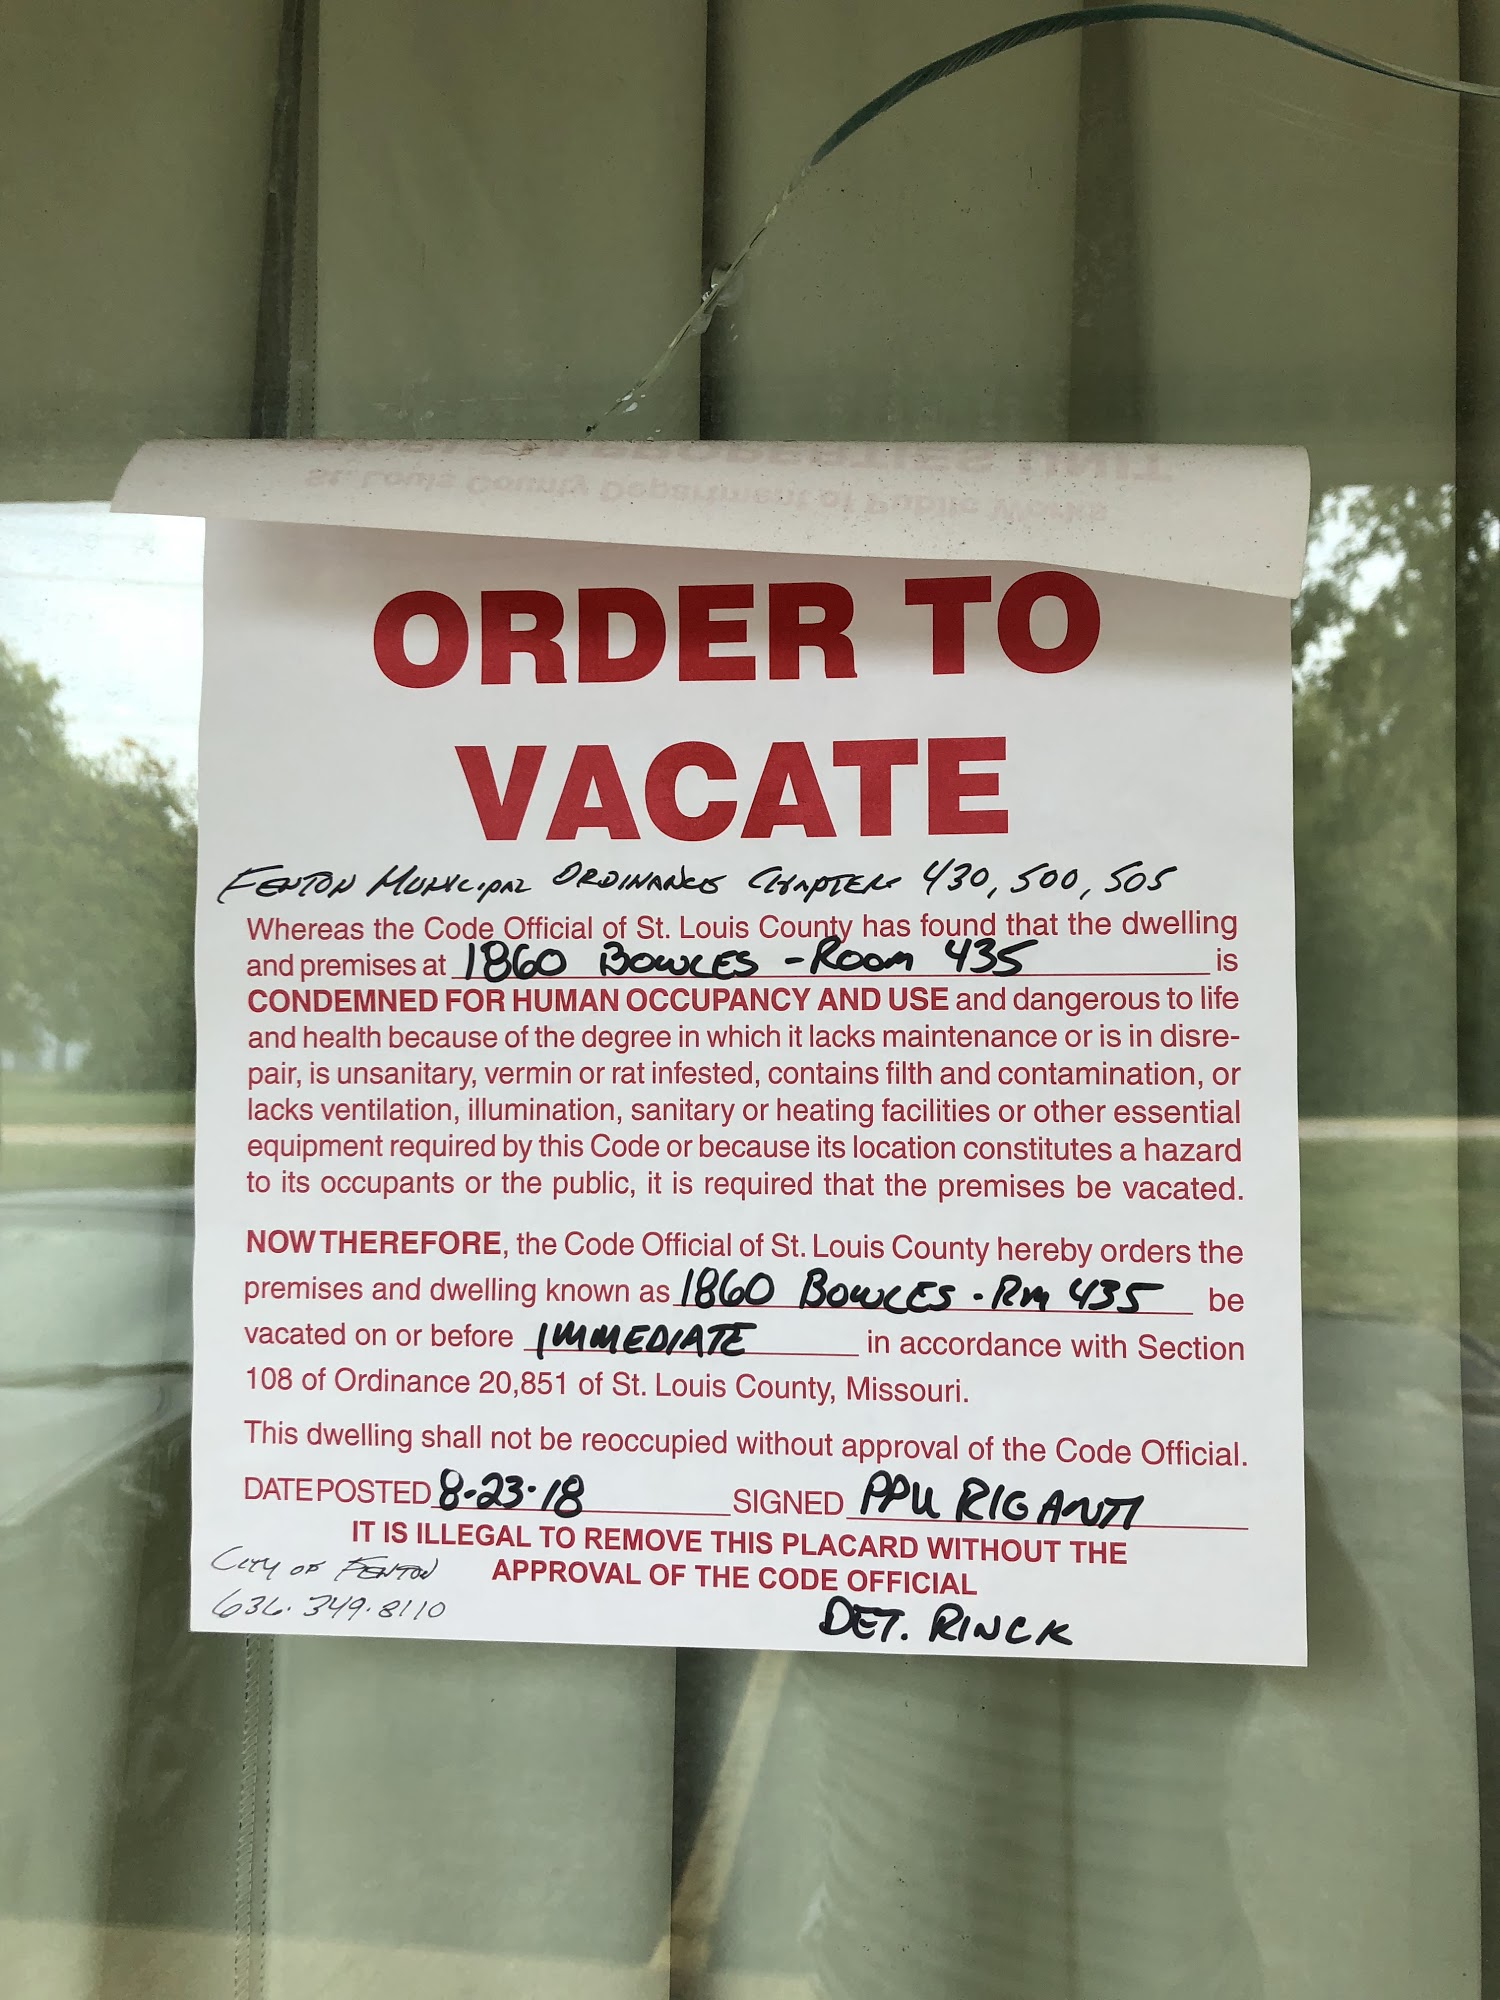 PROPERTIES UNIT
St. Louis County Department of Public Works
ORDER TO
VACATE
FENTON MUNICIPAL ORDINANCE CHAPTER 430, 500, 505
Whereas the Code Official of St. Louis County has found that the dwelling
and premises at 1860 BOWLES - ROOM 435 is
CONDEMNED FOR HUMAN OCCUPANCY AND USE and dangerous to life
and health because of the degree in which it lacks maintenance or is in disre-
pair, is unsanitary, vermin or rat infested, contains filth and contamination, or
lacks ventilation, illumination, sanitary or heating facilities or other essential
equipment required by this Code or because its location constitutes a hazard
to its occupants or the public, it is required that the premises be vacated.
NOW THEREFORE, the Code Official of St. Louis County hereby orders the
premises and dwelling known as 1860 BOWLES - RM 435 be
vacated on or before IMMEDIATE in accordance with Section
108 of Ordinance 20,851 of St. Louis County, Missouri.
This dwelling shall not be reoccupied without approval of the Code Official.
DATE POSTED 8-23-18 SIGNED PPU RIGANTI
IT IS ILLEGAL TO REMOVE THIS PLACARD WITHOUT THE
APPROVAL OF THE CODE OFFICIAL
CITY OF FENTON
636.349.8110
DET. RINCK